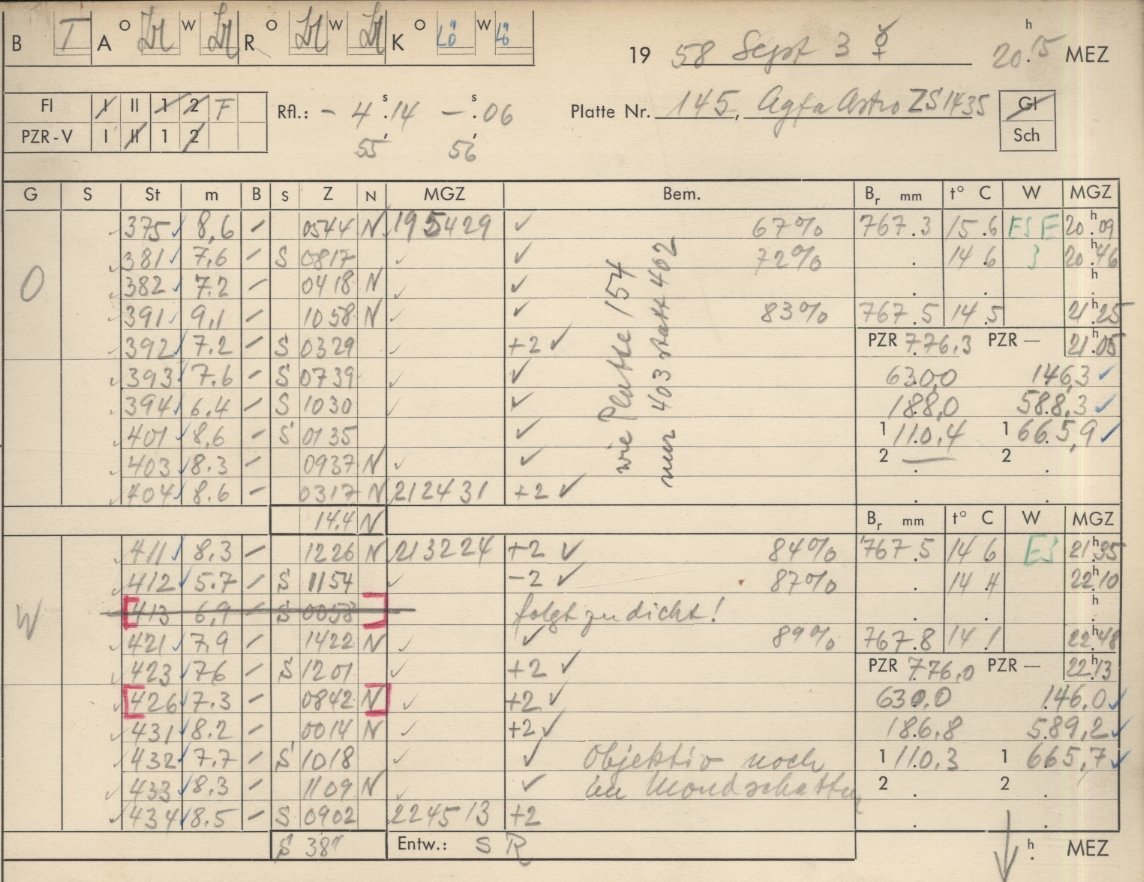 B T A O W R O W K O Lö W Lö
19 58 Sept 3 ☿ 20 h 15 MEZ
FI I II 1 2 F
PZR-V I II 1 2
Rfl.: - 4 s. 14 - s. 06
55' 56'
Platte Nr. 145, Agfa Astro ZS 1435
Gl
Sch
G S St m B S Z N MGZ Bem. Br mm t° C W MGZ
O
375 8,6 0544 N 195429 ✓ 67% 767.3 15.6 ESE 20 h 09
381 7,6 S 0817 ✓ ✓ 72% 14 6 20 46
382 7.2 0418 N ✓ ✓
391 9,1 1058 N ✓ ✓ 83% 767.5 14.5 21 h 25
392 7.2 S 0329 ✓ +2 ✓ PZR 776.3 PZR — 21 05
393 7.6 S 0739 ✓ ✓ 630,0 146,3 ✓
394 6,4 S 1030 ✓ ✓ 188,0 588,3 ✓
401 8,6 S 0135 ✓ 1 110.4 1 665,9 ✓
403 8.3 0937 N ✓ ✓ 2 2
404 8.6 0317 N 212431 +2 ✓
wie Platte 154
nur 403 statt 402
14.4 N Br mm t° C W MGZ
W
411 8.3 1226 N 213224 +2 ✓ 84% 767.5 14 6 ES 21 h 35
412 5.7 S 1154 ✓ -2 ✓ 87% 14 4 22 10
413 6,9 S 0058 folgt zu dicht!
421 7,9 1422 N ✓ ✓ 89% 767.8 14 1 22 h 48
423 76 S 1201 ✓ +2 ✓ PZR 776,0 PZR — 22 13
426 7.3 0842 N ✓ +2 ✓ 630.0 146.0 ✓
431 8.2 0014 N ✓ +2 ✓ 186.8 589,2 ✓
432 7,7 S 1018 ✓ ✓ Objektiv noch 1 110.3 1 665,7 ✓
433 8.3 1109 N ✓ ✓ im Mondschatten 2 2
434 8.5 S 0902 224513 +2
S 38" Entw.: S R h MEZ